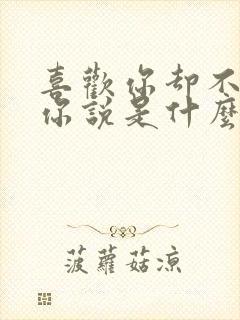 喜歡你却不
你說是什麼
菠蘿菇涼